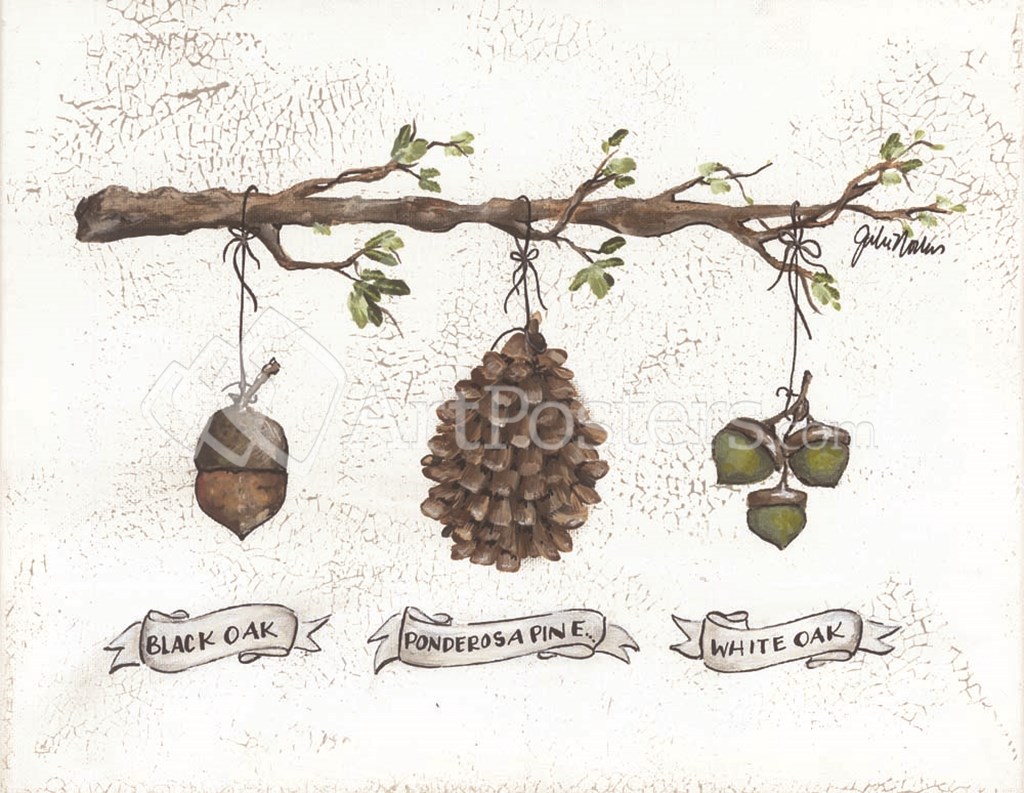 Julie Norkus
ArtPosters.com
BLACK OAK
PONDEROSA PINE...
WHITE OAK